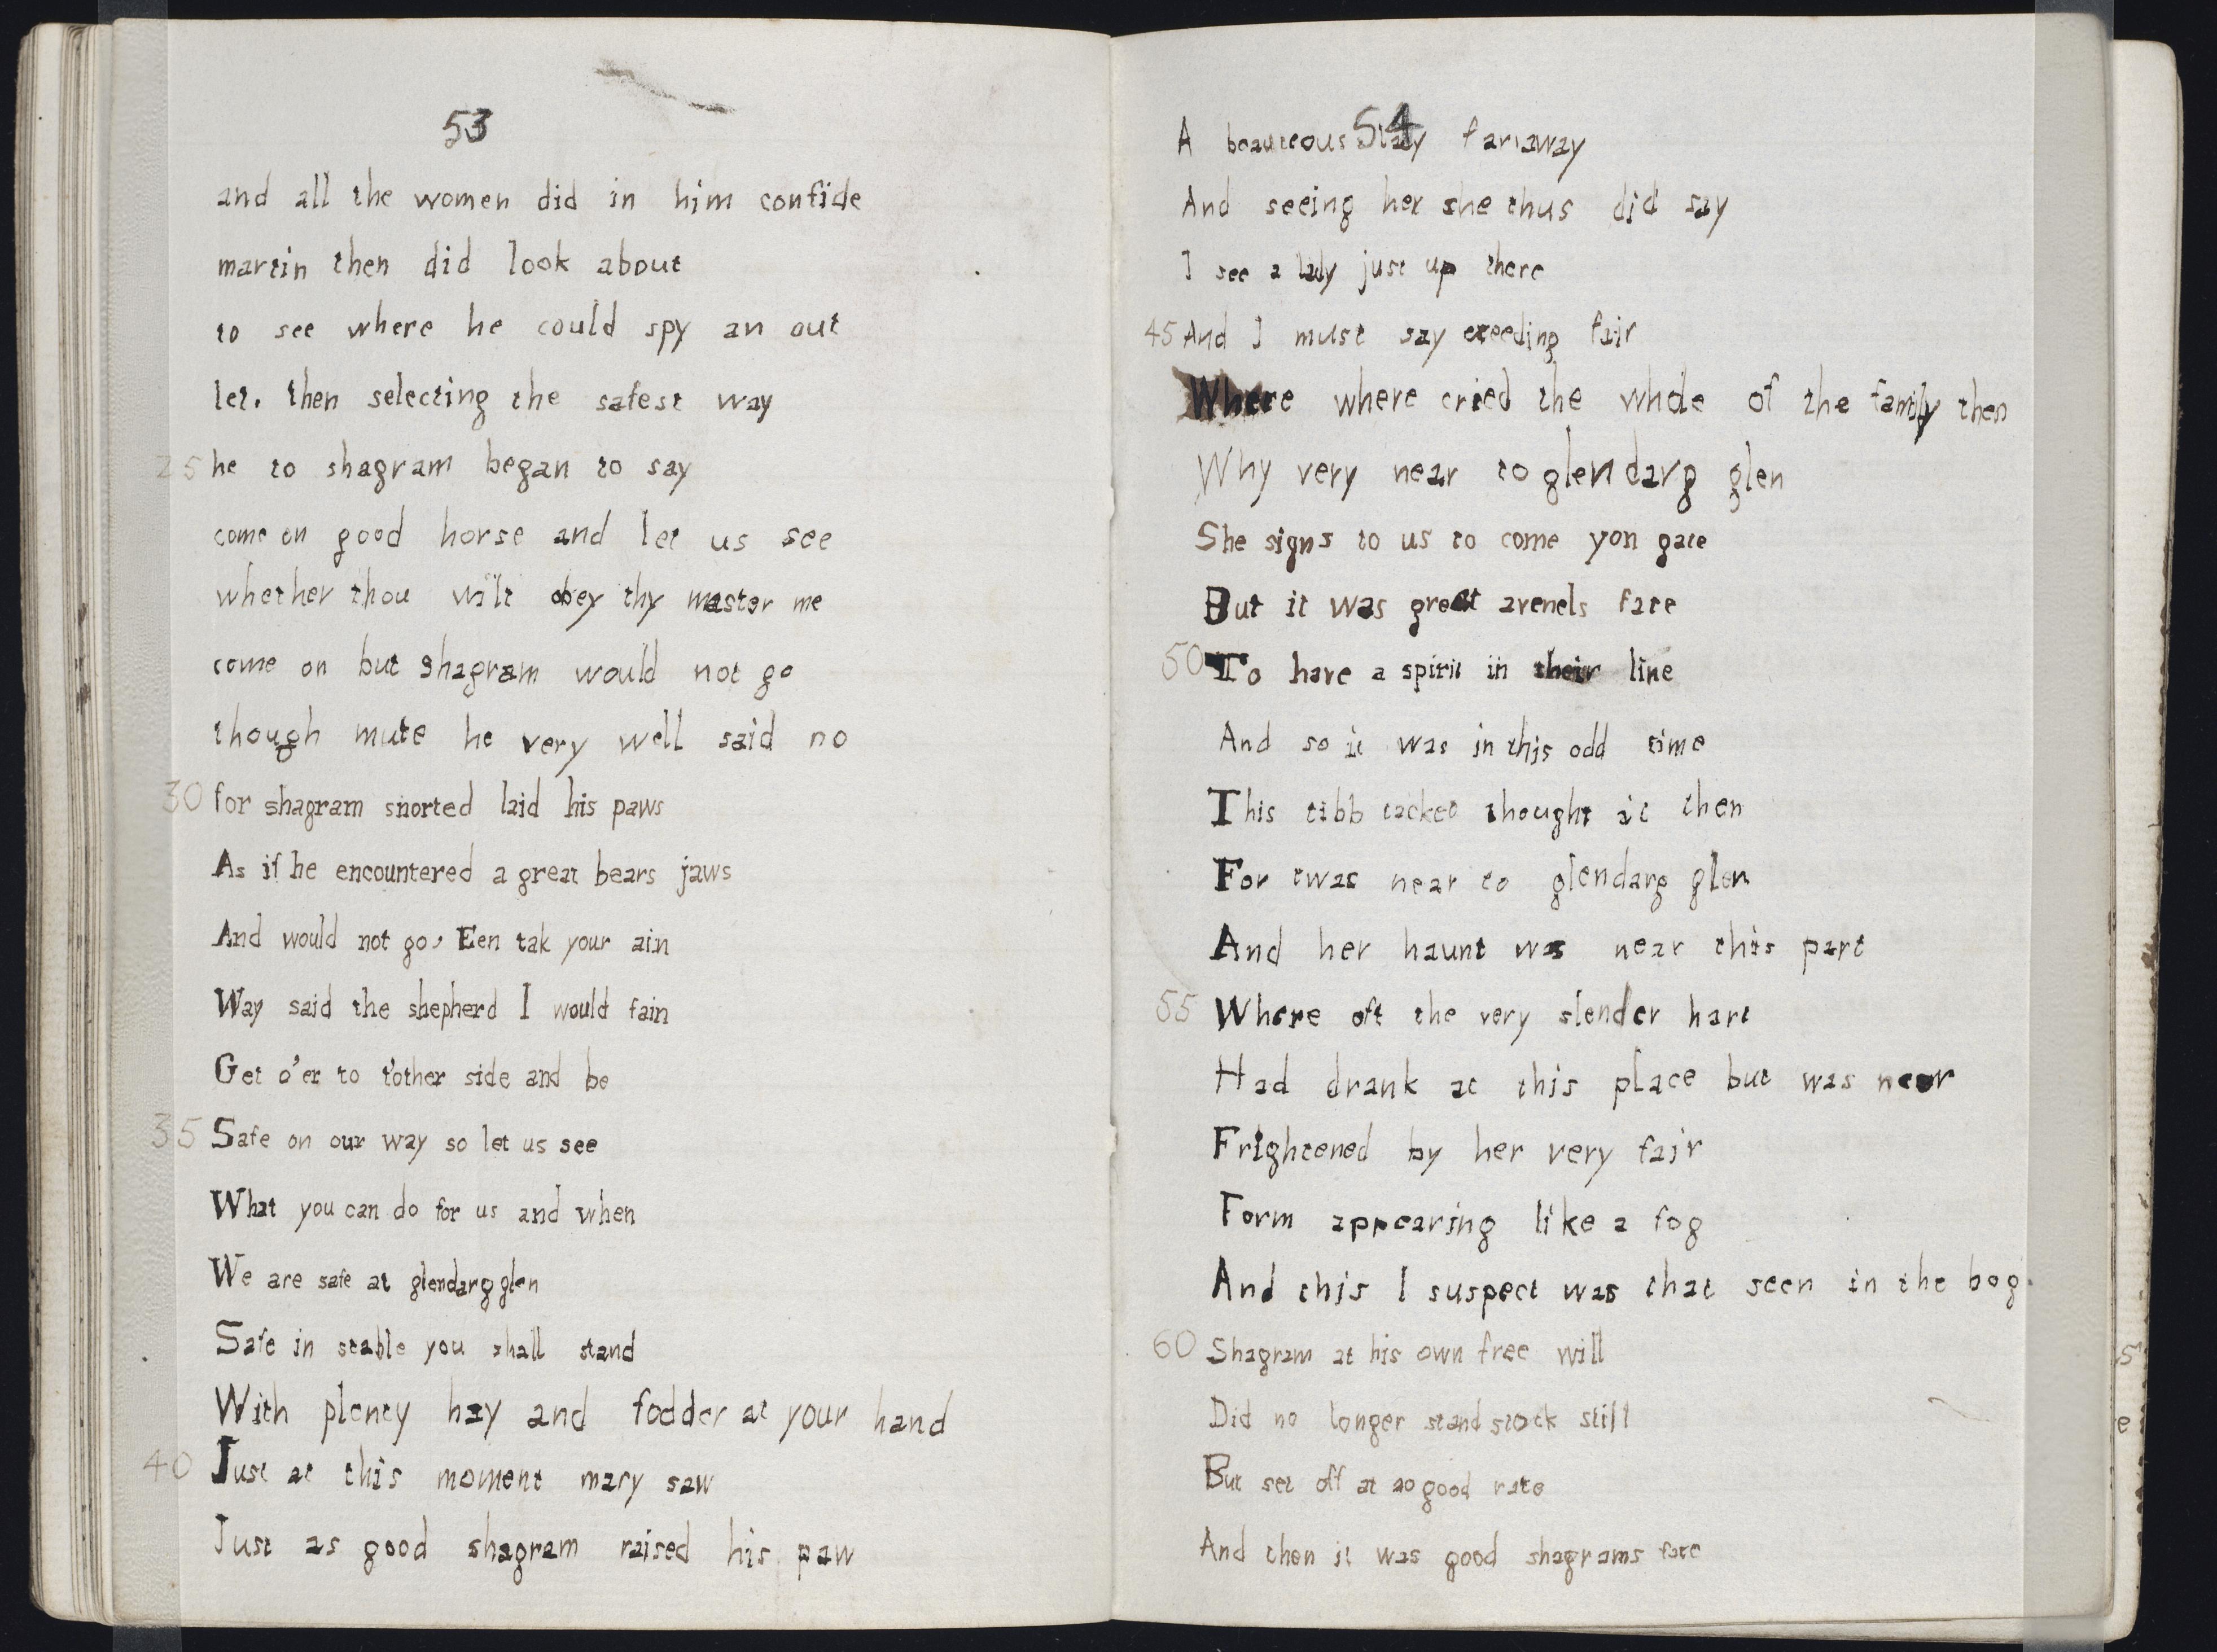 53
and all the women did in him confide
martin then did look about
to see where he could spy an out
let. then selecting the safest way
25 he to shagram began to say
come on good horse and let us see
whether thou wilt obey thy master me
come on but shagram would not go
though mute he very well said no
30 for shagram snorted laid his paws
As if he encountered a great bears jaws
And would not go, Een tak your ain
Way said the shepherd I would fain
Get o'er to t'other side and be
35 Safe on our way so let us see
What you can do for us and when
We are safe at glendarg glen
Safe in stable you shall stand
With plenty hay and fodder at your hand
40 Just at this moment mary saw
Just as good shagram raised his paw
54
A beauteous lady far away
And seeing her she thus did say
I see a lady just up there
45 And I must say exeeding fair
Where where cried the whole of the family then
Why very near to glendarg glen
She signs to us to come yon gate
But it was great avenels fate
50 To have a spirit in their line
And so it was in this odd time
This tibb tacket thought it then
For twas near to glendarg glen
And her haunt was near this part
55 Where oft the very slender hart
Had drank at this place but was neer
Frightened by her very fair
Form appearing like a fog
And this I suspect was that seen in the bog.
60 Shagram at his own free will
Did no longer stand stock still
But set off at no good rate
And then it was good shagrams fate
5
e